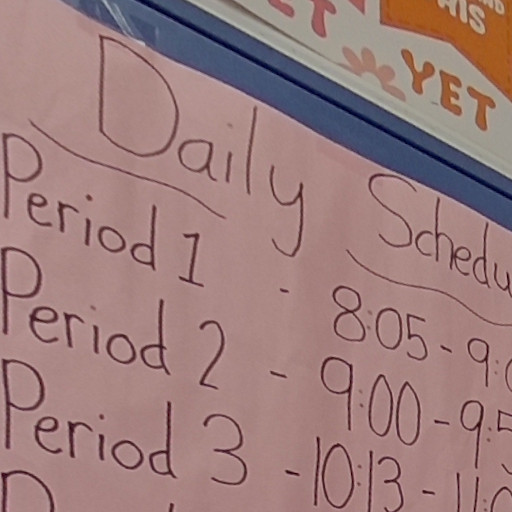 YET
Daily Schedu
Period 1 - 8:05 - 9:0
Period 2 - 9:00 - 9:5
Period 3 - 10:13 - 11:0